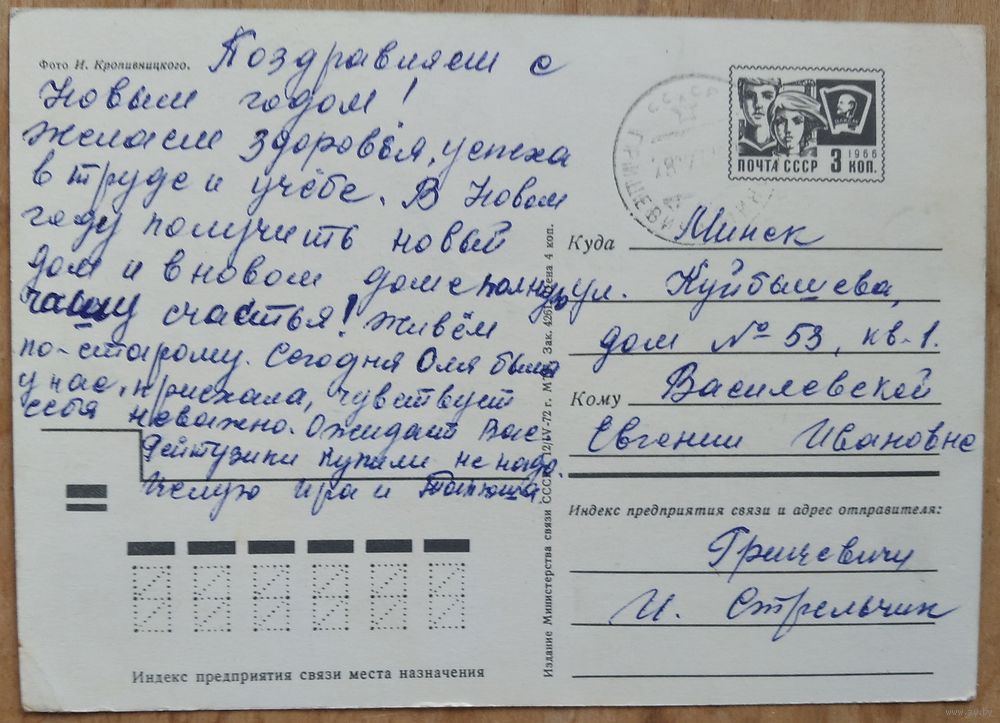 Фото И. Кропивницкого.
Поздравляем с
Новым годом!
Желаем здоровья, успеха
в труде и учёбе. В Новом
году получить новый
дом и в новом доме полную
чашу счастья! Живём
по-старому. Сегодня Оля была
у нас, приехала, чувствует
себя неважно. Ожидает Вас
Рейтузики купили не надо.
Целую Ира и Танюша
Индекс предприятия связи места назначения
Издание Министерства связи СССР. 12/IV-72 г. Зак. 4261 Цена 4 коп.
СССР
ПОЧТА СССР 3 КОП. 1966
Куда Минск
ул. Куйбышева,
дом № 53, кв. 1.
Кому Василевской
Евгении Ивановне
Индекс предприятия связи и адрес отправителя:
Грицевичи
И. Стрельчик
www.ay.by